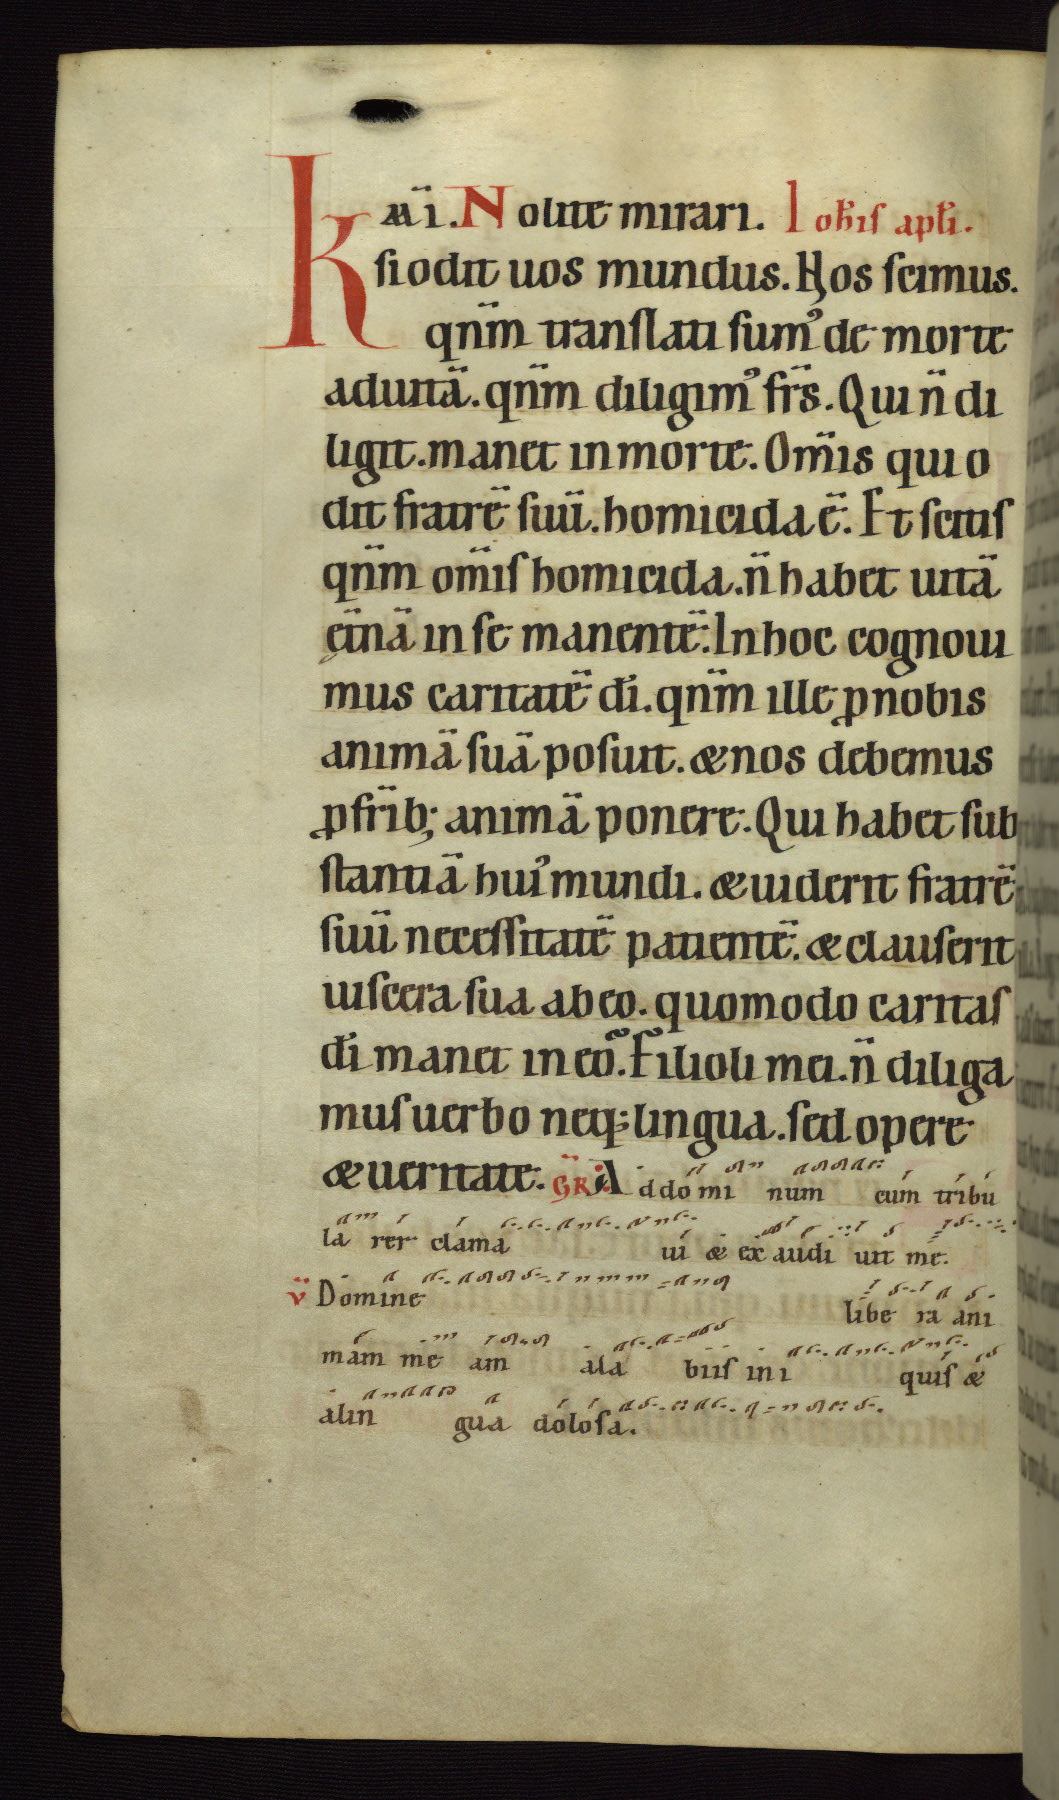 Kmı̄. Nolite mirari. Ioħis apłi.
si odit uos mundus. Nos scimus.
qm̄m translati sum᾽ de morte
aduitā. qnm̄ diligim᾽ frs̄. Qui n̄ di
ligit. manet in morte. Om̄is qui o
dit fratrē suū. homicida ē. Et scitis
qnm̄ om̄is homicida. n̄ habet uitā
et̄nā in se manentē. In hoc cognoui
mus caritatē dı̄. qnm̄ ille ꝓ nobis
animā suā posuit. & nos debemus
ꝓ frı̄b; animā ponere. Qui habet sub
stantiā hui᾽ mundi. & uiderit fratrē
suū necessitatē patientē. & clauserit
uiscera sua ab eo. quomodo caritas
dı̄ manet in eo. Filioli mei. n̄ diliga
mus uerbo neq; lingua. sed opere
& ueritate. GR̄ Addomi num cum tribu
la rer clama ui & ex audi uit me.
v̄ Domine libe ra ani
mam me am ala biis ini quis &
alin gua dolosa.